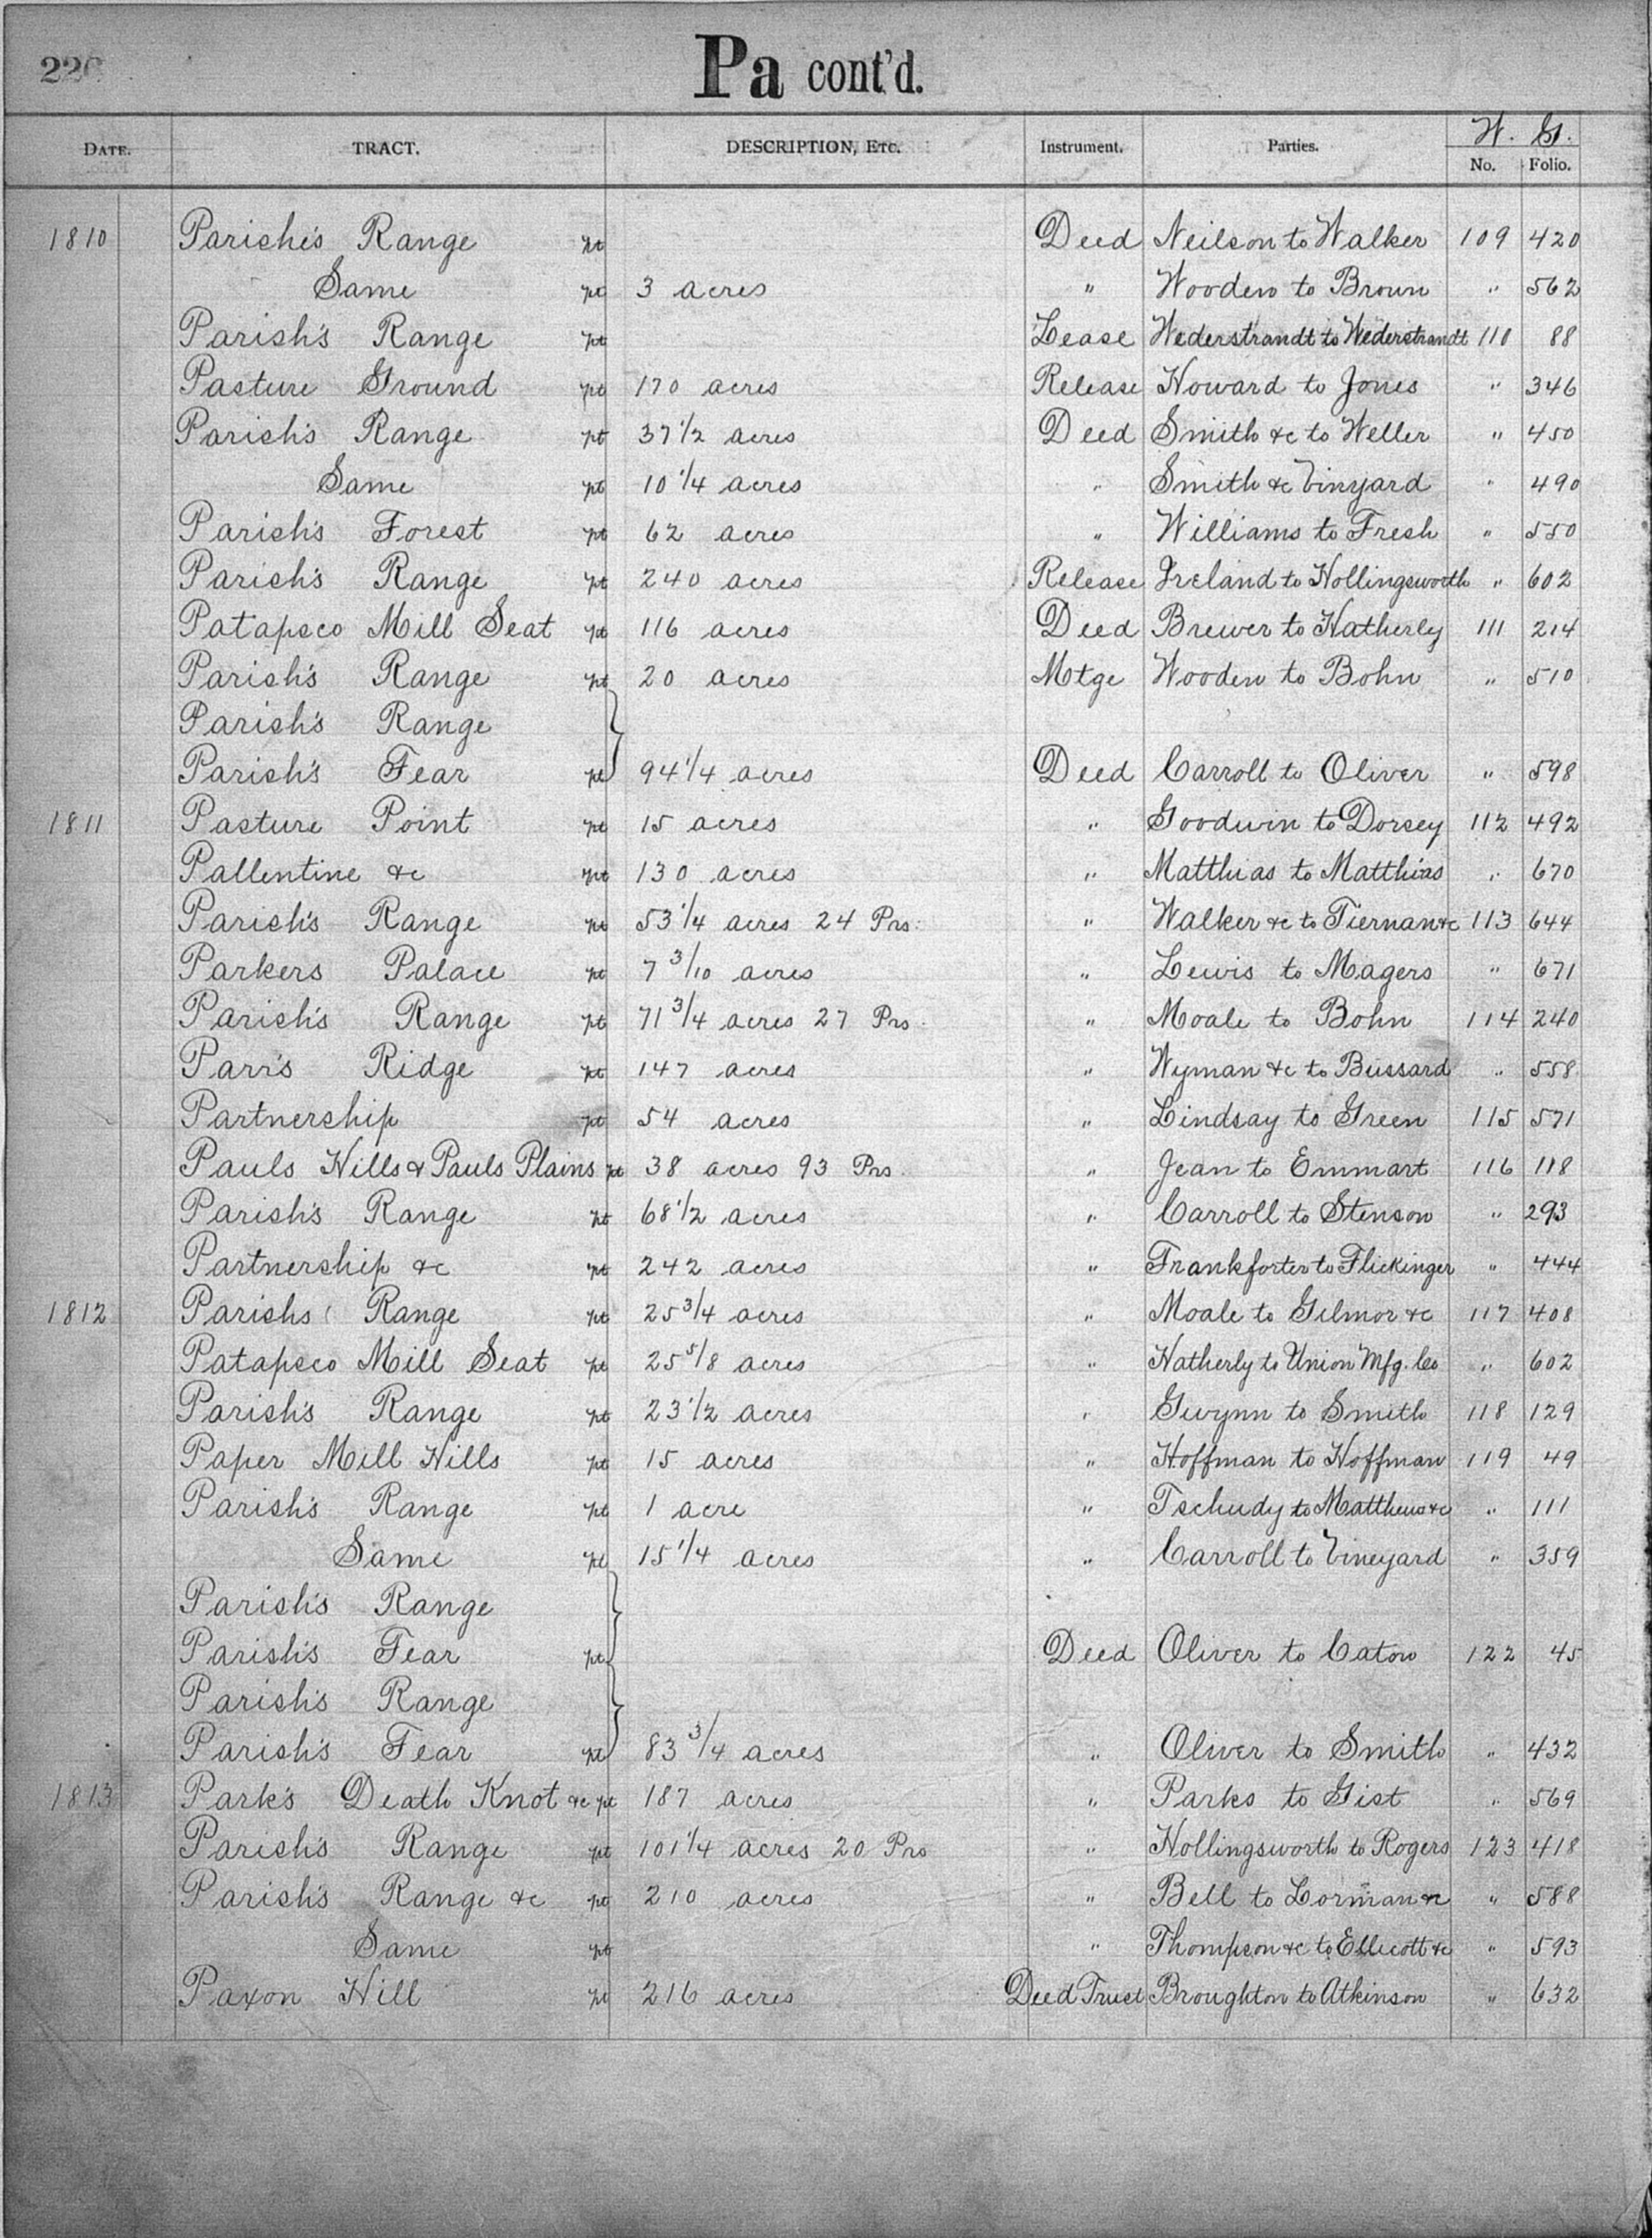 226 Pa cont'd.
W. G.
DATE. TRACT. DESCRIPTION, ETC. Instrument. Parties. No. Folio.
1810 Parish's Range pt Deed Neilson to Walker 109 420
Same pt 3 acres " Wooden to Brown " 562
Parish's Range pt Lease Wederstrandt to Wederstrandt 110 88
Pasture Ground pt 170 acres Release Howard to Jones " 346
Parish's Range pt 37 1/2 acres Deed Smith &c to Weller " 450
Same pt 10 1/4 acres " Smith &c Vinyard " 490
Parish's Forest pt 62 acres " Williams to Fresh " 550
Parish's Range pt 240 acres Release Ireland to Hollingsworth " 602
Patapsco Mill Seat pt 116 acres Deed Brewer to Hatherly 111 214
Parish's Range pt 20 acres Motge Wooden to Bohn " 510
Parish's Range
Parish's Fear pt 94 1/4 acres Deed Carroll to Oliver " 598
1811 Pasture Point pt 15 acres " Goodwin to Dorsey 112 492
Pallentine &c pt 130 acres " Matthias to Matthias " 670
Parish's Range pt 53 1/4 acres 24 Prs. " Walker &c to Tiernan &c 113 644
Parkers Palace pt 7 3/10 acres " Lewis to Magers " 671
Parish's Range pt 71 3/4 acres 27 Prs. " Moale to Bohn 114 240
Parr's Ridge pt 147 acres " Wyman &c to Bussard " 558
Partnership pt 54 acres " Lindsay to Green 115 571
Pauls Hills & Pauls Plains pt 38 acres 93 Prs. " Jean to Emmart 116 118
Parish's Range pt 68 1/2 acres " Carroll to Stenson " 293
Partnership &c pt 242 acres " Frankforter to Flickinger " 444
1812 Parishs Range pt 25 3/4 acres " Moale to Gilmor &c 117 408
Patapsco Mill Seat pt 25 5/8 acres " Hatherly to Union Mfg. Co " 602
Parish's Range pt 23 1/2 acres " Gwynn to Smith 118 129
Paper Mill Hills pt 15 acres " Hoffman to Hoffman 119 49
Parish's Range pt 1 acre " Tschudy to Matthews &c " 111
Same pt 15 1/4 acres " Carroll to Vineyard " 359
Parish's Range
Parish's Fear pt Deed Oliver to Caton 122 45
Parish's Range
Parish's Fear pt 83 3/4 acres " Oliver to Smith " 432
1813 Park's Death Knot &c pt 187 acres " Parks to Gist " 569
Parish's Range pt 101 1/4 acres 20 Prs " Hollingsworth to Rogers 123 418
Parish's Range &c pt 210 acres " Bell to Lorman &c " 588
Same pt " Thompson &c to Ellicott &c " 593
Paxon Hill pt 216 acres Deed Trust Broughton to Atkinson " 632